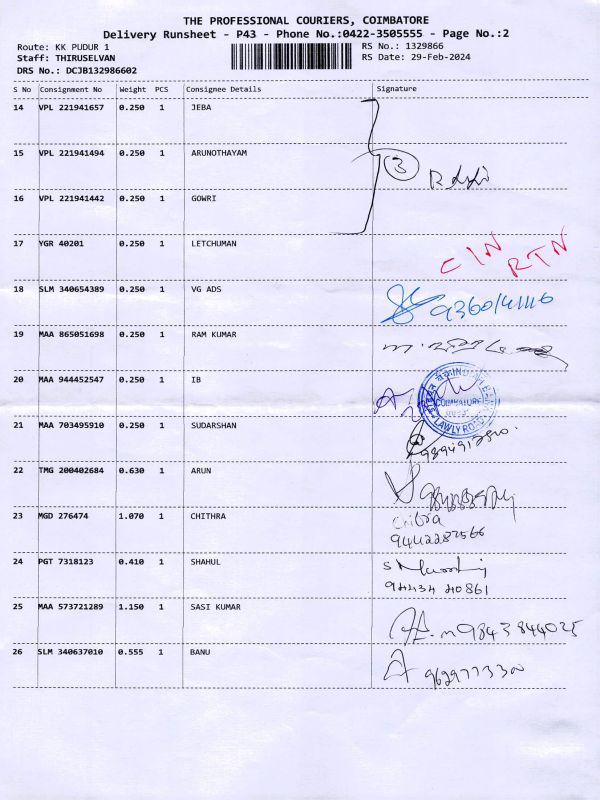 THE PROFESSIONAL COURIERS, COIMBATORE
Delivery Runsheet - P43 - Phone No.:0422-3505555 - Page No.:2
Route: KK PUDUR 1
RS No.: 1329866
Staff: THIRUSELVAN
RS Date: 29-Feb-2024
DRS No.: DCJB132986602
S No Consignment No Weight PCS Consignee Details Signature
14 VPL 221941657 0.250 1 JEBA
15 VPL 221941494 0.250 1 ARUNOTHAYAM
3
16 VPL 221941442 0.250 1 GOWRI
17 YGR 40201 0.250 1 LETCHUMAN
RTN
18 SLM 340654389 0.250 1 VG ADS
19 MAA 865051698 0.250 1 RAM KUMAR
20 MAA 944452547 0.250 1 IB
COIMBATORE
LAWLY ROAD
21 MAA 703495910 0.250 1 SUDARSHAN
22 TMG 200402684 0.630 1 ARUN
23 MGD 276474 1.070 1 CHITHRA
Chitra
9442282566
24 PGT 7318123 0.410 1 SHAHUL
94434 40861
25 MAA 573721289 1.150 1 SASI KUMAR
9843844025
26 SLM 340637010 0.555 1 BANU